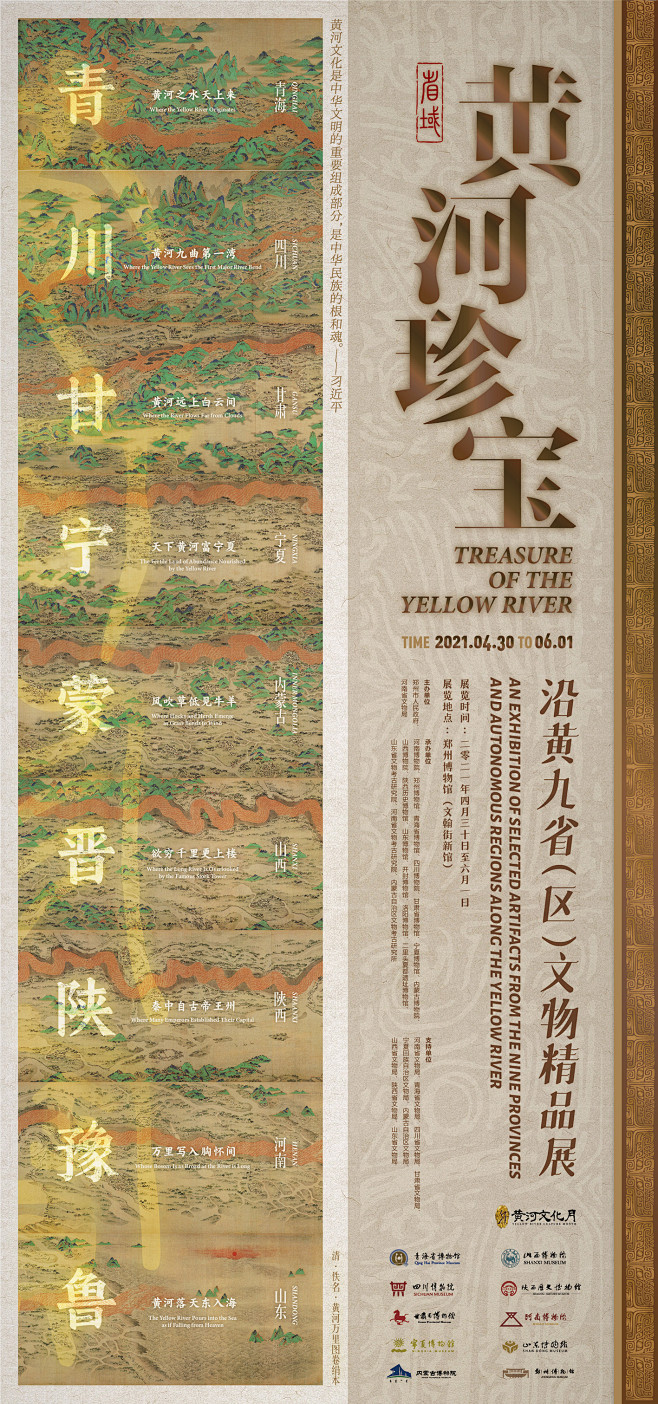 青
黄河之水天上来
Where the Yellow River Originates
青海
QINGHAI
川
黄河九曲第一湾
Where the Yellow River Sees the First Major River Bend
四川
SICHUAN
甘
黄河远上白云间
Where the River Flows Far from Clouds
甘肃
GANSU
宁
天下黄河富宁夏
The Fertile Land of Abundance Nourished
by the Yellow River
宁夏
NINGXIA
蒙
风吹草低见牛羊
Where Flocks and Herds Emerge
as Grass Bends to Wind
内蒙古
INNER MONGOLIA
晋
欲穷千里更上楼
Where the Long River Is Overlooked
by the Famous Stork Tower
山西
SHANXI
陕
秦中自古帝王州
Where Many Emperors Established Their Capital
陕西
SHAANXI
豫
万里写入胸怀间
Whose Bosom Is as Broad as the River is Long
河南
HENAN
鲁
黄河落天东入海
The Yellow River Pours into the Sea
as if Falling from Heaven
山东
SHANDONG
黄河文化是中华文明的重要组成部分，是中华民族的根和魂。——习近平
清·佚名·黄河万里图卷绢本
黄河珍宝
TREASURE
OF THE
YELLOW RIVER
TIME 2021.04.30 TO 06.01
沿黄九省（区）文物精品展
AN EXHIBITION OF SELECTED ARTIFACTS FROM THE NINE PROVINCES
AND AUTONOMOUS REGIONS ALONG THE YELLOW RIVER
展览时间：二零二一年四月三十日至六月一日
展览地点：郑州博物馆（文翰街新馆）
主办单位
郑州市人民政府
河南省文物局
承办单位
河南博物院 郑州博物馆 青海省博物馆 四川博物院 甘肃省博物馆 宁夏博物馆 内蒙古博物院
山西博物院 陕西历史博物馆 山东博物馆 开封博物馆 洛阳博物馆 二里头夏都遗址博物馆
山东省文物考古研究院 河南省文物考古研究院 内蒙古自治区文物考古研究所
支持单位
河南省文物局 青海省文物局 四川省文物局 甘肃省文物局
宁夏回族自治区文物局 内蒙古自治区文物局
山西省文物局 陕西省文物局 山东省文物局
黄河文化月
YELLOW RIVER CULTURE MONTH
青海省博物馆
Qing Hai Province Museum
山西博物院
SHANXI MUSEUM
四川博物院
SICHUAN MUSEUM
陕西历史博物馆
甘肃省博物馆
河南博物院
宁夏博物馆
山东博物馆
SHAN DONG MUSEUM
内蒙古博物院
郑州博物馆